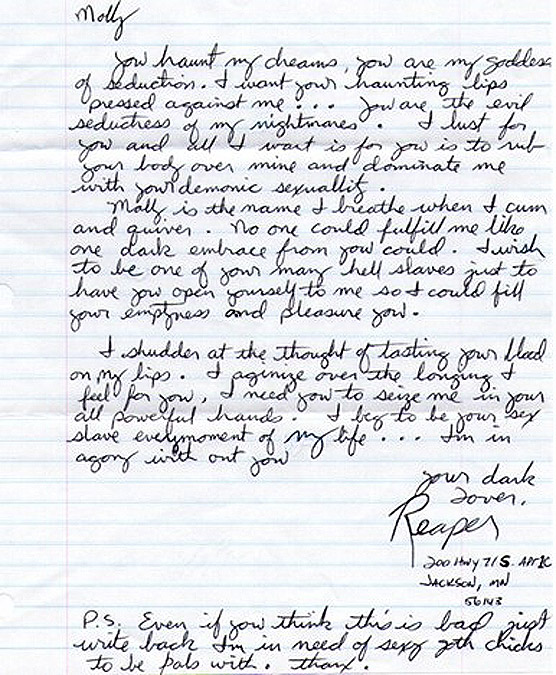 Molly
you haunt my dreams, you are my goddess
of seduction. I want your haunting lips
pressed against me... you are the evil
seductress of my nightmares. I lust for
you and all I want is for you is to rub
your body over mine and dominate me
with your demonic sexuallity.
Molly, is the name I breathe when I cum
and quiver. No one could fulfill me like
one dark embrace from you could. I wish
to be one of your many hell slaves just to
have you open yourself to me so I could fill
your emptyness and pleasure you.
I shudder at the thought of tasting your blood
on my lips. I aginize over the longing I
feel for you, I need you to seize me in your
all powerful hands. I beg to be your sex
slave everymoment of my life... I'm in
agony with out you
your dark
lover,
Reaper
200 Hwy 71 S. Apt 1C
Jackson, MN
56143
P.S. Even if you think this is bad just
write back I'm in need of sexy goth chicks
to be pals with. thanx.